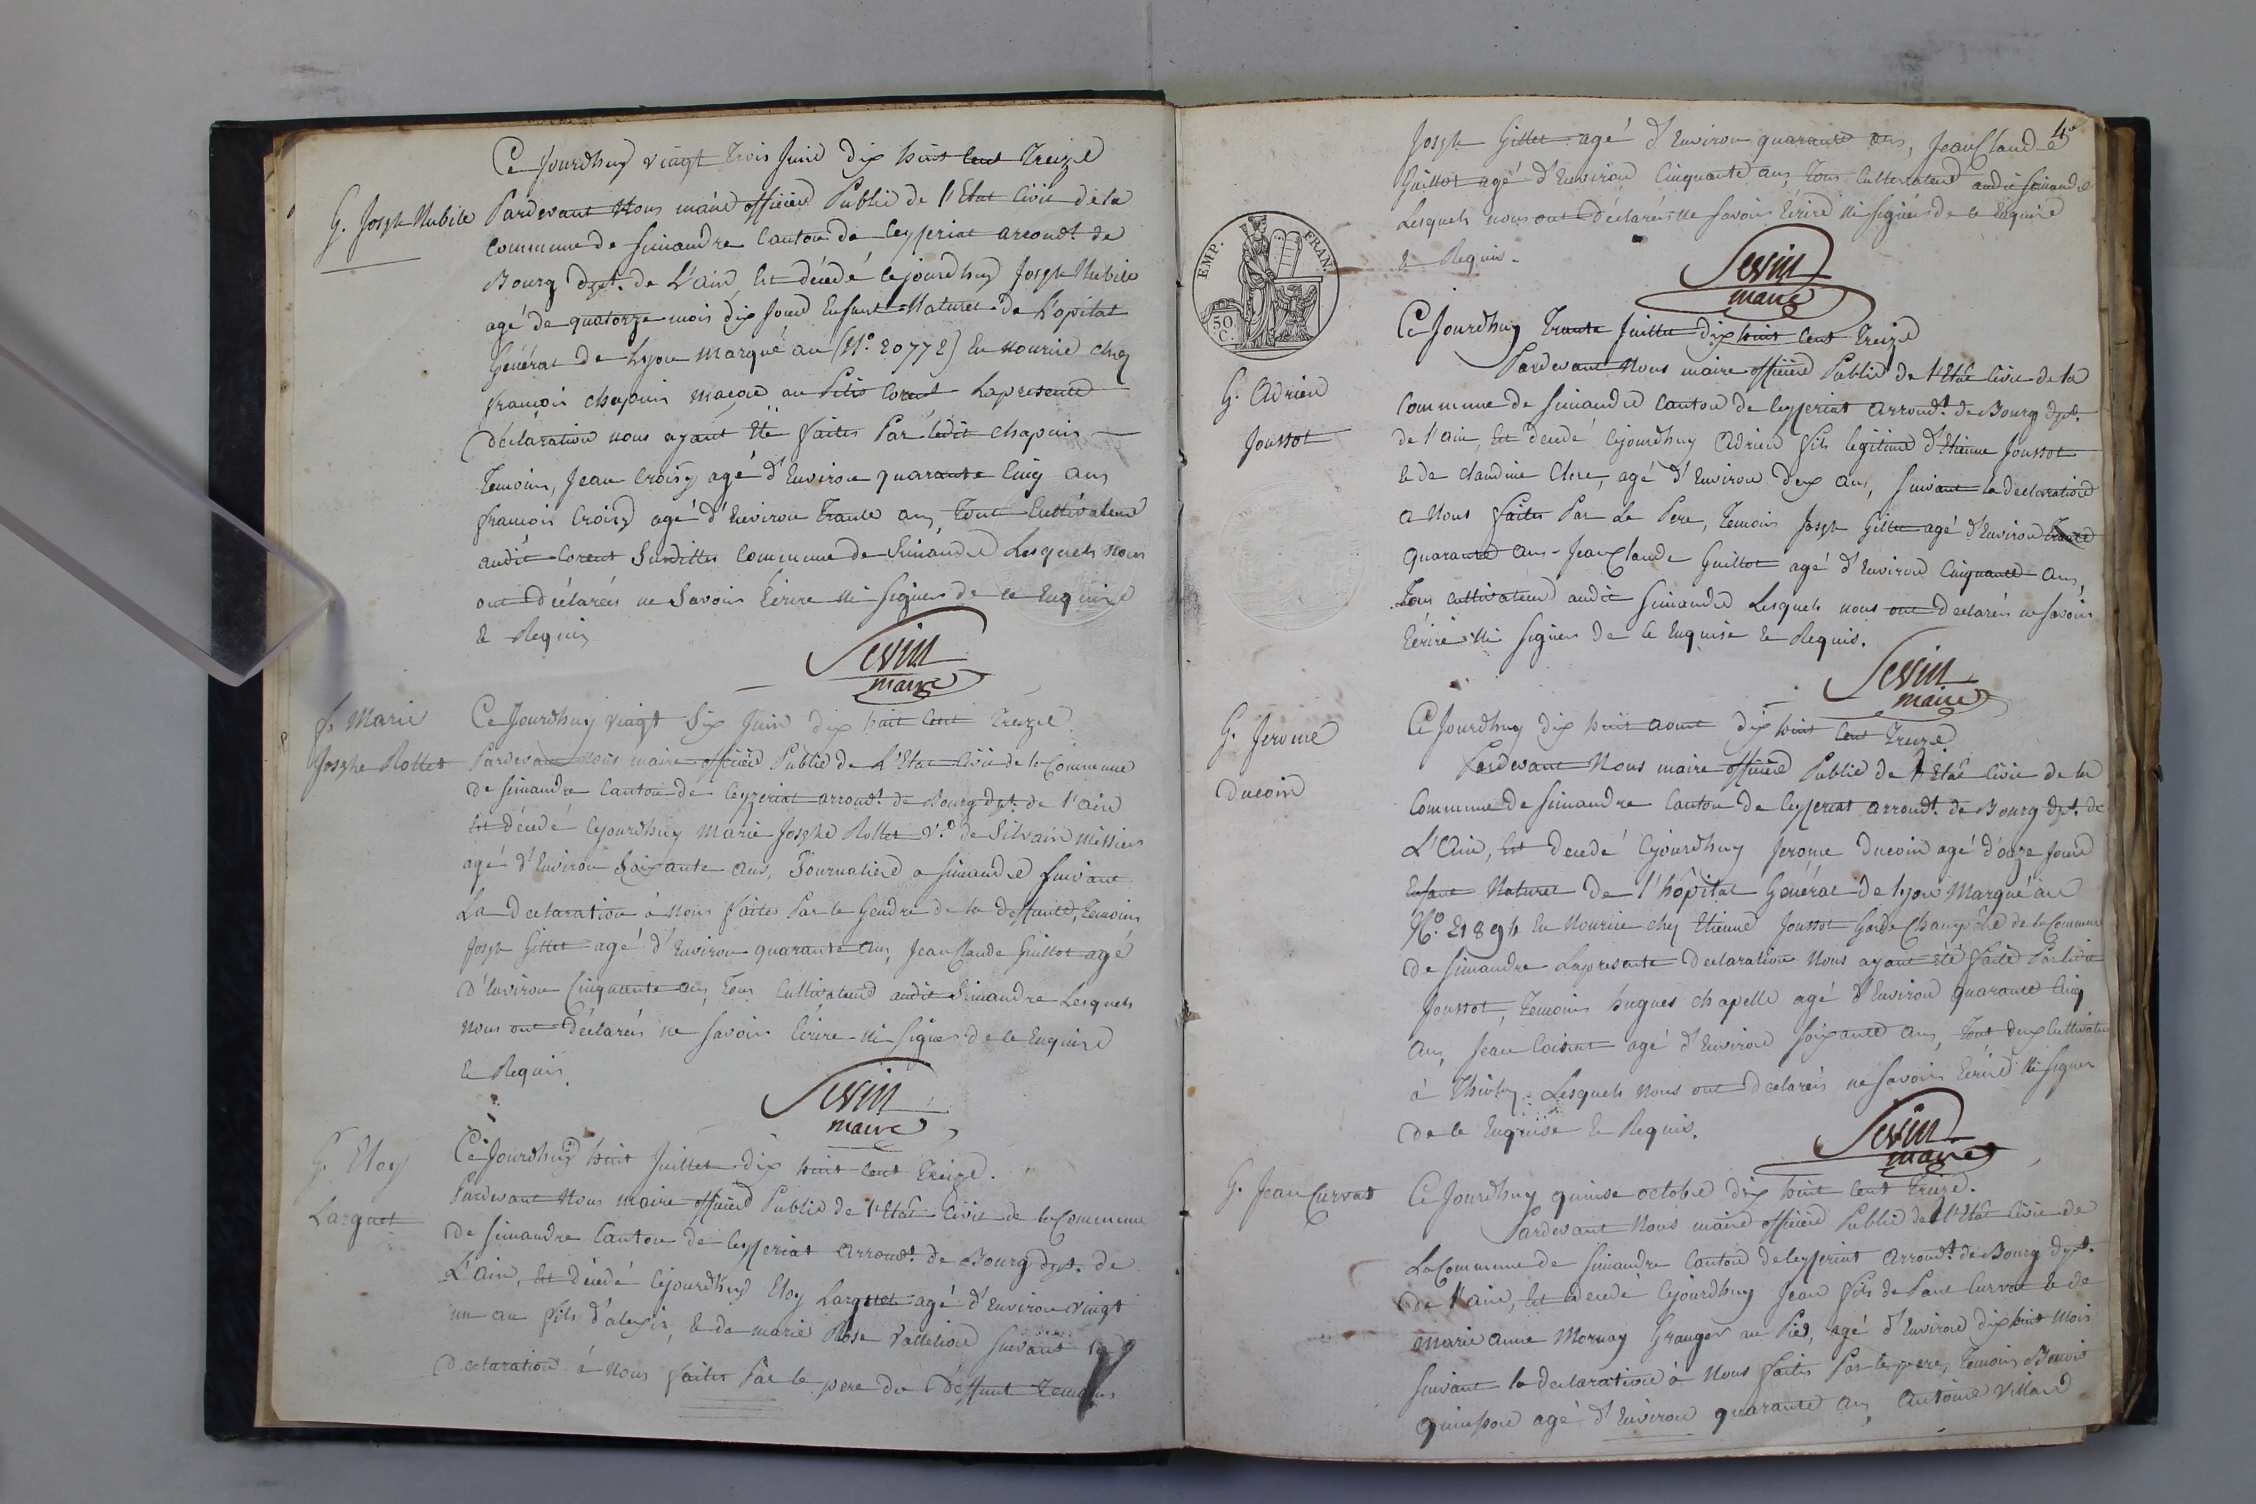 Ce Jourdhuy vingt trois Juin dix huit Cent Treize
G. Joseph Nubile
Pardevant Nous maire officier Public de l'Etat Civil de la
commune de Simandre Canton de Ceyzeriat arrondt. de
Bourg dept. de L'ain, Est décédé cejourdhuy Joseph Nubile
agé de quatorze mois dix Jours Enfant Naturel de L'opital
Général de Lyon marqué au (N°. 20772) En nourrice chez
françois chapuis maçon au Petit Corent Lapresente
déclaration nous ayant Eté faites Par ledit chapuis
Temoins, Jean Croisy agé d'Environ quarante Cinq ans
françois Croisy agé d'Environ Trante ans, Tout Cultivateur
audit Corent Susditte Commune de Simandre Lesquels nous
ont Déclarés ne Savoir Ecrire Ni Signer de ce Enquire
& Requis
Sevin
maire
f. Marie
Josephe Rollet
Ce Jourdhuy vingt Six Juin dix huit Cent Treize
Pardevant nous maire officier Public de L'Etat Civil de la Commune
de Simandre Canton de Ceyzeriat arrondt. de Bourg dept. de l'ain
Est décédé Cejourdhuy Marie Josephe Rollet Ve. de Silvain Missier
agé d'Environ Soixante ans, Journaliere a Simandre Suivant
La declaration à nous faites Par le Gendre de la deffunte, Temoins
Joseph Gillet agé d'Environ quarante ans, Jean Claude Guillot agé
d'Environ Cinquante ans, Tous Cultivateurs audit Simandre Lesquels
nous ont Déclarés ne Savoir Ecrire Ni Signer de ce Enquire
& Requis.
Sevin
maire
G. Eloy
Larguet
Ce Jourdhuy huit Juillet dix huit cent Treize.
Pardevant Nous maire officier Public de l'Etat Civil de la Commune
de Simandre Canton de Ceyzeriat arrondt. de Bourg dept. de
L'ain, Est décédé cejourdhuy Eloy Larguet agé d'Environ vingt
un an fils d'alexis, & de marie Rose Suivant la
declaration à Nous faites Par le pere du Deffunt Temoins
4e
Joseph Gillet agé d'Environ quarante ans, Jean Claude
Guillot agé d'Environ Cinquante ans, Tous Cultivateurs audit Simandre
Lesquels nous ont Déclarés ne Savoir Ecrire Ni Signer de ce Enquire
& Requis.
Sevin
maire
EMP. FRAN.
50 C.
G. Adrien
Joussot
Ce Jourdhuy Trante Juillet dix huit Cent Treize
Pardevant Nous maire officier Public de l'Etat Civil de la
Commune de Simandre Canton de Ceyzeriat arrondt. de Bourg dept.
de l'ain, Est décédé cejourdhuy Adrien fils légitime d'Etienne Joussot
& de Claudine Clere, agé d'Environ deux ans, Suivant la declaration
a Nous faites Par Le Pere, Temoins Joseph Gillet agé d'Environ
quarante ans - Jean Claude Guillot agé d'Environ Cinquante ans,
Tous cultivateurs audit Simandre Lesquels nous ont declarés ne Savoir
Ecrire Ni Signer de ce Enquise & Requis.
Sevin
maire
G. Jerome
Ducoin
Ce Jourdhuy dix huit aout dix huit Cent Treize
Pardevant Nous maire officier Public de l'Etat Civil de la
Commune de Simandre Canton de Ceyzeriat arrondt. de Bourg dept. de
L'Ain, Est decedé Cejourdhuy Jerome Ducoin agé d'onze Jours
Enfant Naturel de l'hôpital Général de Lyon Marqué au
N°. 21894 En Nourrice chez Etienne Joussot Garde Champêtre de la Commune
de Simandre Lapresente declaration Nous ayant Eté faite Par ledit
Joussot, Temoins hugues chapelle agé d'Environ quarante Cinq
ans, Jean agé d'Environ Soixante ans, Tout deux Cultivateur
à Lesquels Nous ont declarés ne Savoir Ecrire Ni Signer
de ce Enquise & Requis.
Sevin
maire
G. Jean Curvat
Ce Jourdhuy quinse octobre dix huit Cent Treize.
Pardevant Nous maire officier Public de l'Etat Civil de
La Commune de Simandre Canton de Ceyzeriat arrondt. de Bourg dept.
de l'ain, Est decedé Cejourdhuy Jean fils de Paul Curvat & de
Marie anne Mornay Granger au Pied, agé d'Environ dix huit mois
Suivant la declaration à Nous faites Par le pere, Temoins Benoit
agé d'Environ quarante ans, Antoine Villard